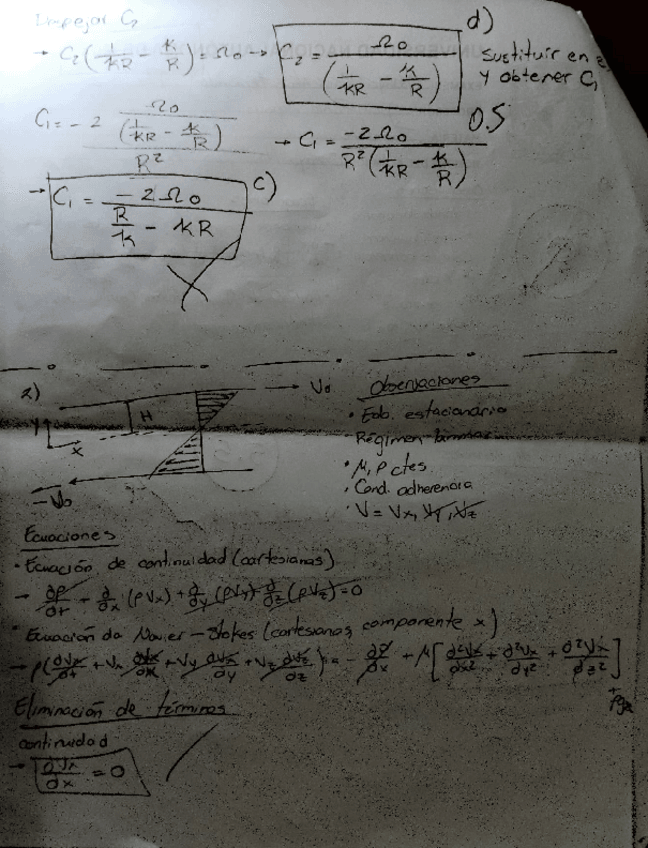 Despejar C₂
→ C₂(1/kR - k/R) = Ω₀ → C₂ = Ω₀/(1/kR - k/R)
d)
Sustituir en
y obtener C₁
C₁ = -2 Ω₀/(1/kR - k/R)/R² → C₁ = -2Ω₀/R²(1/kR - k/R)
0.5
→ C₁ = -2Ω₀/(R/k - kR)
c)
2)
V₀
H
y
x
-V₀
Observaciones
• Edo. estacionario
· Régimen laminar
• μ, ρ ctes.
· Cond. adherencia
· V = Vx, Vy, Vz
Ecuaciones
• Ecuación de continuidad (cartesianas)
→ ∂ρ/∂t + ∂/∂x (ρVx) + ∂/∂y (ρVy) + ∂/∂z (ρVz) = 0
• Ecuación de Navier - Stokes (cartesianas, componente x)
→ ρ(∂Vx/∂t + Vx ∂Vx/∂x + Vy ∂Vx/∂y + Vz ∂Vx/∂z) = - ∂P/∂x + μ[∂²Vx/∂x² + ∂²Vx/∂y² + ∂²Vx/∂z²]
Eliminación de términos
continuidad
→ ∂Vx/∂x = 0